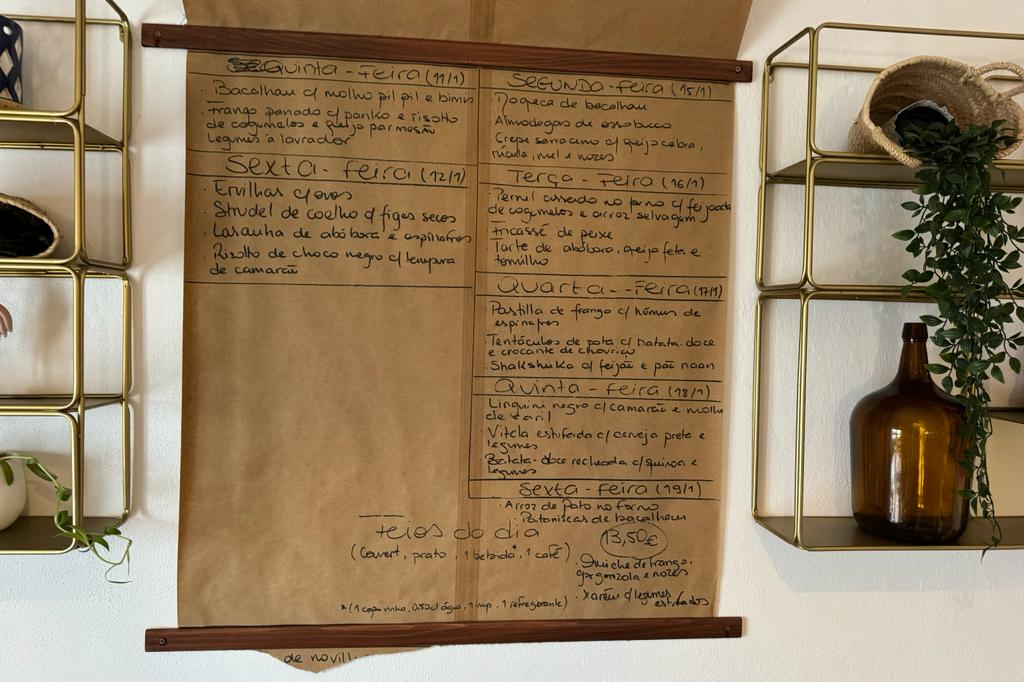 Quinta - Feira (11/1)
· Bacalhau c/ molho pil pil e bimis
· Frango panado c/ panko e risotto
de cogumelos e queijo parmesão
legumes à lavrador
Sexta - Feira (12/1)
· Ervilhas c/ovos
· Strudel de coelho c/ figos secos
· Lasanha de abóbora e espinafres
· Risotto de choco negro c/ tempura
de camarão
SEGUNDA-Feira (15/1)
Moqueca de bacalhau
Almodegas de ossobuco
· Crepe sarraceno c/ queijo cabra,
rúcula, mel e nozes
Terça - Feira (16/1)
· Pernil assado no forno c/ feijoada
de cogumelos e arroz selvagem
· Fricassé de peixe
· Tarte de abóbora, queijo feta e
tomilho
Quarta - Feira (17/1)
Pastilla de frango c/ húmus de
espinafres
· Tentáculos de pota c/ batata-doce
e crocante de chouriço
· Shakshuka c/ feijão e pão naan
Quinta - Feira (18/1)
· Linguini negro c/ camarão e molho
de caril
· Vitela estufada c/ cerveja preta e
legumes
· Batata-doce recheada c/ quinoa e
legumes
Sexta - Feira (19/1)
· Arroz de Pato no Forno
· Pataniscas de bacalhau
· Quiche de frango,
gorgonzola e nozes
· Xarém c/ legumes
estufados
do dia
13,50€
(Couvert, prato, 1 bebida*, 1 café)
*(1 copo vinho, 0,50cl água, 1 imp, 1 refrigerante)
de novill